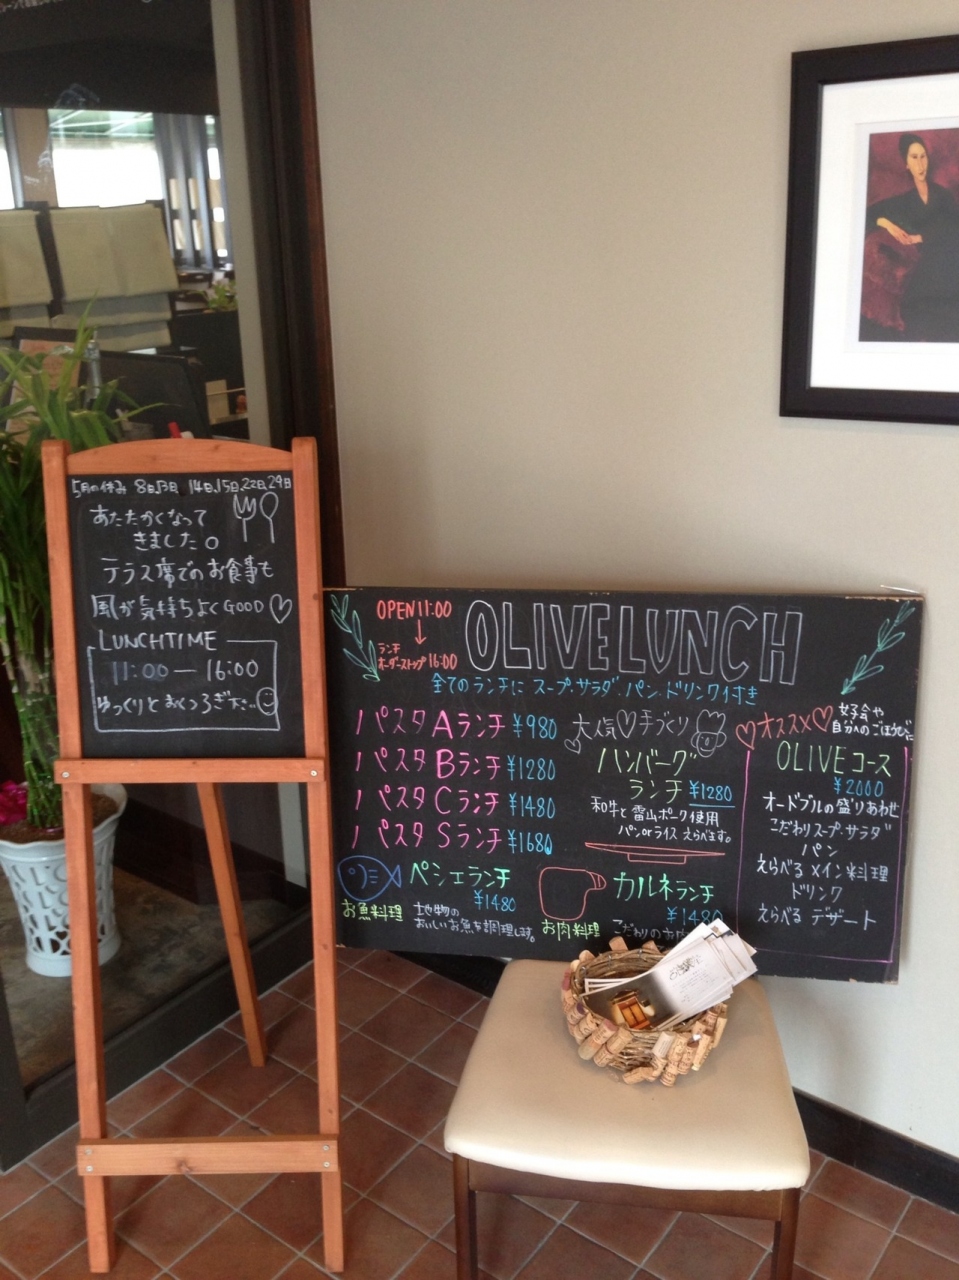 5月の休み 8日.13日.14日.15日.22日.29日
あたたかくなって
きました。
テラス席でのお食事も
風が気持ちよくGOOD♡
LUNCHTIME
11:00 — 16:00
ゆっくりとおくつろぎ下さい
OPEN11:00
↓
ランチ
オーダーストップ16:00
OLIVE LUNCH
全てのランチに スープ・サラダ・パン・ドリンク付き
パスタAランチ ¥980
パスタBランチ ¥1280
パスタCランチ ¥1480
パスタSランチ ¥1680
ペシェランチ
¥1480
お魚料理
地物の
おいしいお魚を調理します。
大人気♡手づくり
ハンバーグ
ランチ ¥1280
和牛と雷山ポーク使用
パンorライス えらべます。
カルネランチ
¥1480
お肉料理
こだわりのお肉
♡オススメ♡
女子会や
自分へのごほうびに
OLIVEコース
¥2000
オードブルの盛りあわせ
こだわりスープ・サラダ
パン
えらべるメイン料理
ドリンク
えらべる デザート